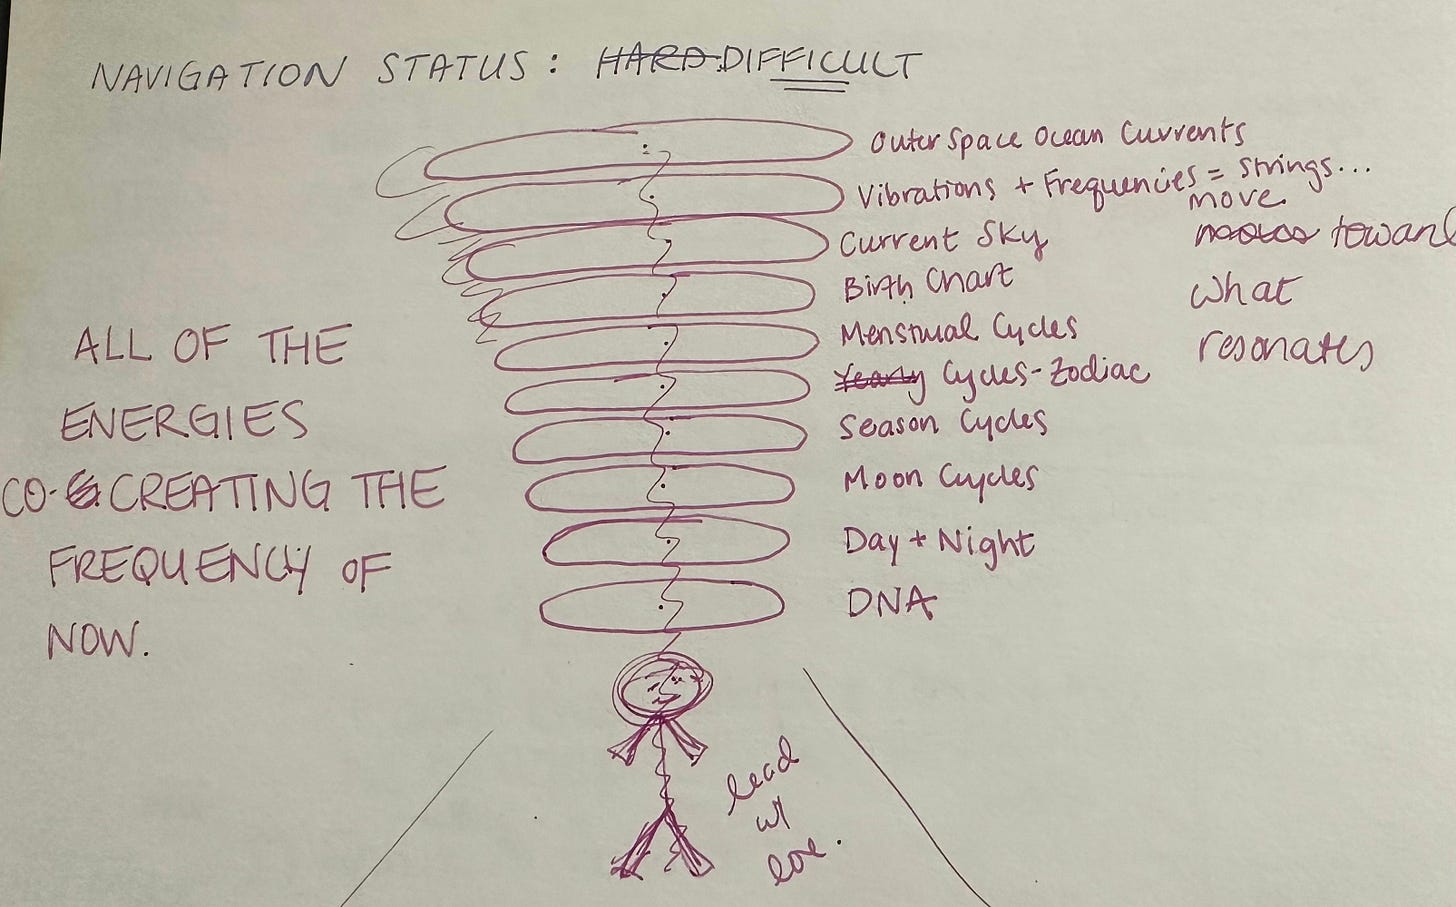 NAVIGATION STATUS: HARD DIFFICULT
Outer Space Ocean Currents
Vibrations + Frequencies = Strings...
Current Sky
Birth Chart
Menstrual Cycles
Yearly Cycles-Zodiac
Season Cycles
Moon Cycles
Day + Night
DNA
move
toward
what
resonates
ALL OF THE
ENERGIES
CO-CREATING THE
FREQUENCY OF
NOW.
lead
w/
love.